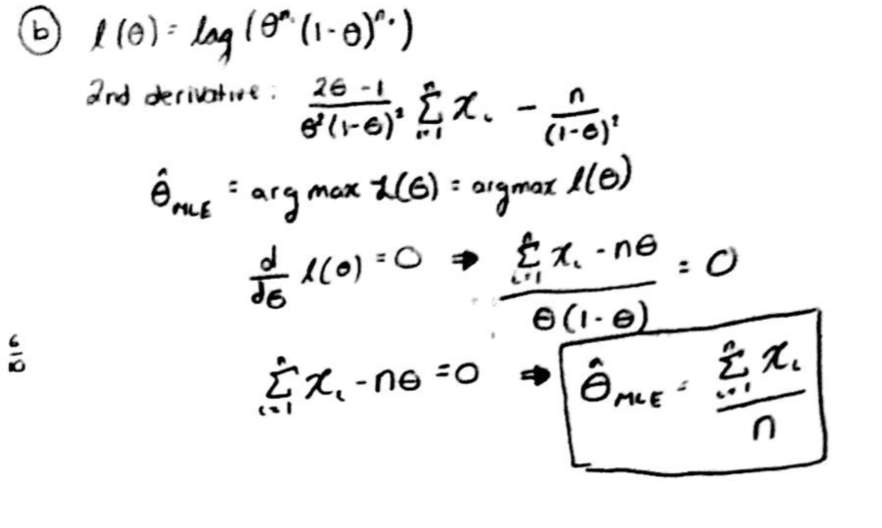 (b) l(θ) = log (θ^n. (1-θ)^n.)
2nd derivative: \frac{2θ-1}{θ²(1-θ)²} \sum_{i=1}^{n} x_i - \frac{n}{(1-θ)²}
\hat{θ}_{MLE} = arg max L(θ) = argmax l(θ)
\frac{d}{dθ} l(θ) = 0 ⇒ \frac{\sum_{i=1}^{n} x_i - nθ}{θ(1-θ)} = 0
\sum_{i=1}^{n} x_i - nθ = 0 ⇒ \hat{θ}_{MLE} = \frac{\sum_{i=1}^{n} x_i}{n}